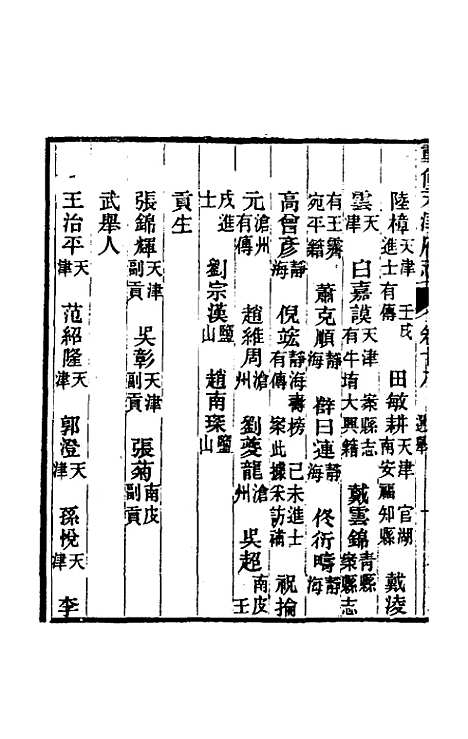 重修天津府志
陸樟天津壬戌進士有傳 田敏耕天津官湖南安福知縣 戴凌
雲天津 白嘉謨天津案縣志有牛堉大興籍 戴雲錦青縣案縣志
有王霽宛平籍 蕭克順靜海 薛曰連靜海 佟衍疇靜海
高曾彥靜海 倪竑靜海壽榜己未進士有傳案此據采訪補 祝掄
元滄州有傳 趙維周滄州 劉夔龍滄州 吳超南皮壬
戌進士 劉宗漢鹽山 趙南琛鹽山
貢生
張錦輝天津副貢 吳彰天津副貢 張菊南皮副貢
武舉人
王治平天津 范紹隆天津 郭澄天津 孫悅天津 李